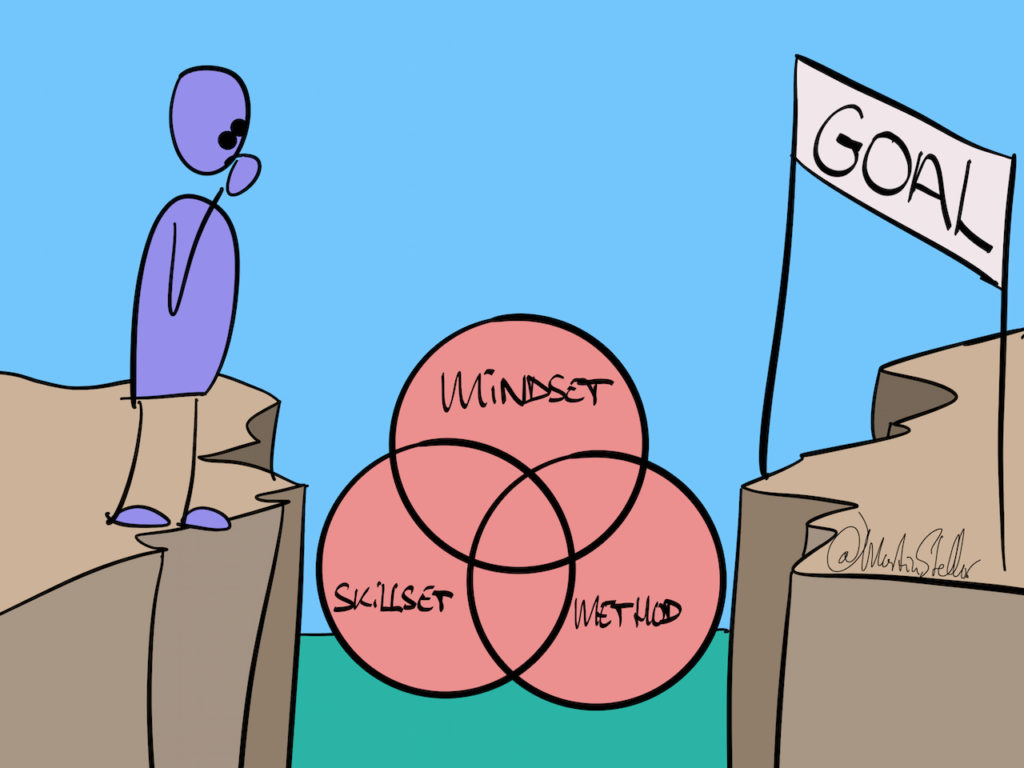 GOAL
MINDSET
SKILLSET
METHOD
@MartinStellar